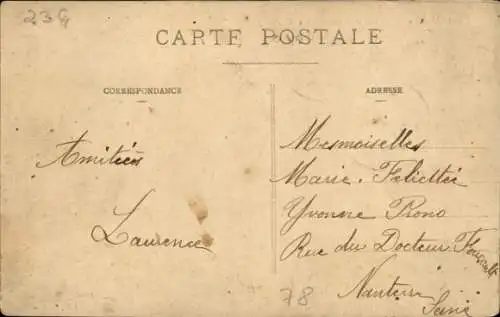 23G
CARTE POSTALE
CORRESPONDANCE
ADRESSE
Amitiées
Laurence
Mesmoiselles
Marie. Feliettée
Yvonne Prono
Rue du Docteur Foucault
Nanterre
Seine
78